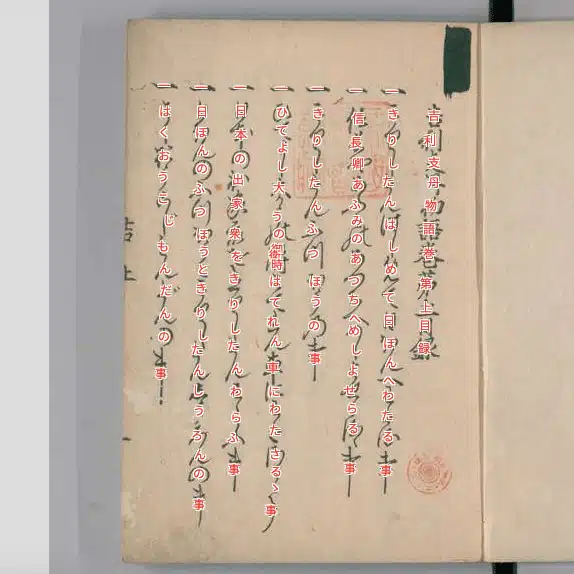 吉利支丹物語巻第上目録
一きりしたんはしめて日ほんへわたる事
一信長卿あふみのあつちへめしよせらるゝ事
一きりしたんふつほうの事
一ひてよし大かうの御時はてれん車にわたさるゝ事
一日本の出家衆をきりしたんわらふ事
一日ほんのふつほうときりしたんしうろんの事
一はくおうこじもんだんの事